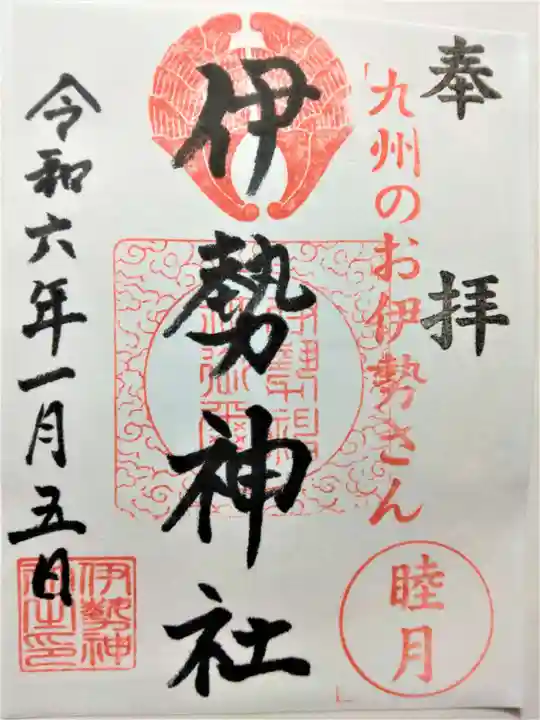 奉拝
「九州のお伊勢さん」
伊勢神社
睦月
令和六年一月五日
伊勢神